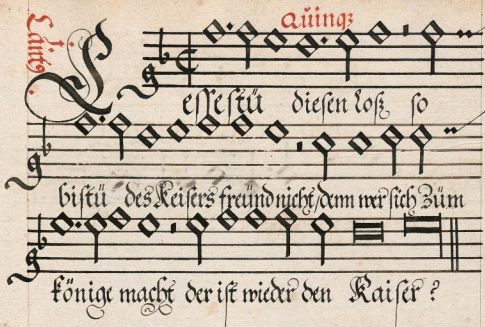 Quinqz
Lessestü diesen loß so
bistü des Keisers freünd nicht/ denn wer sich züm
könige macht der ist wieder den Kaiser ?